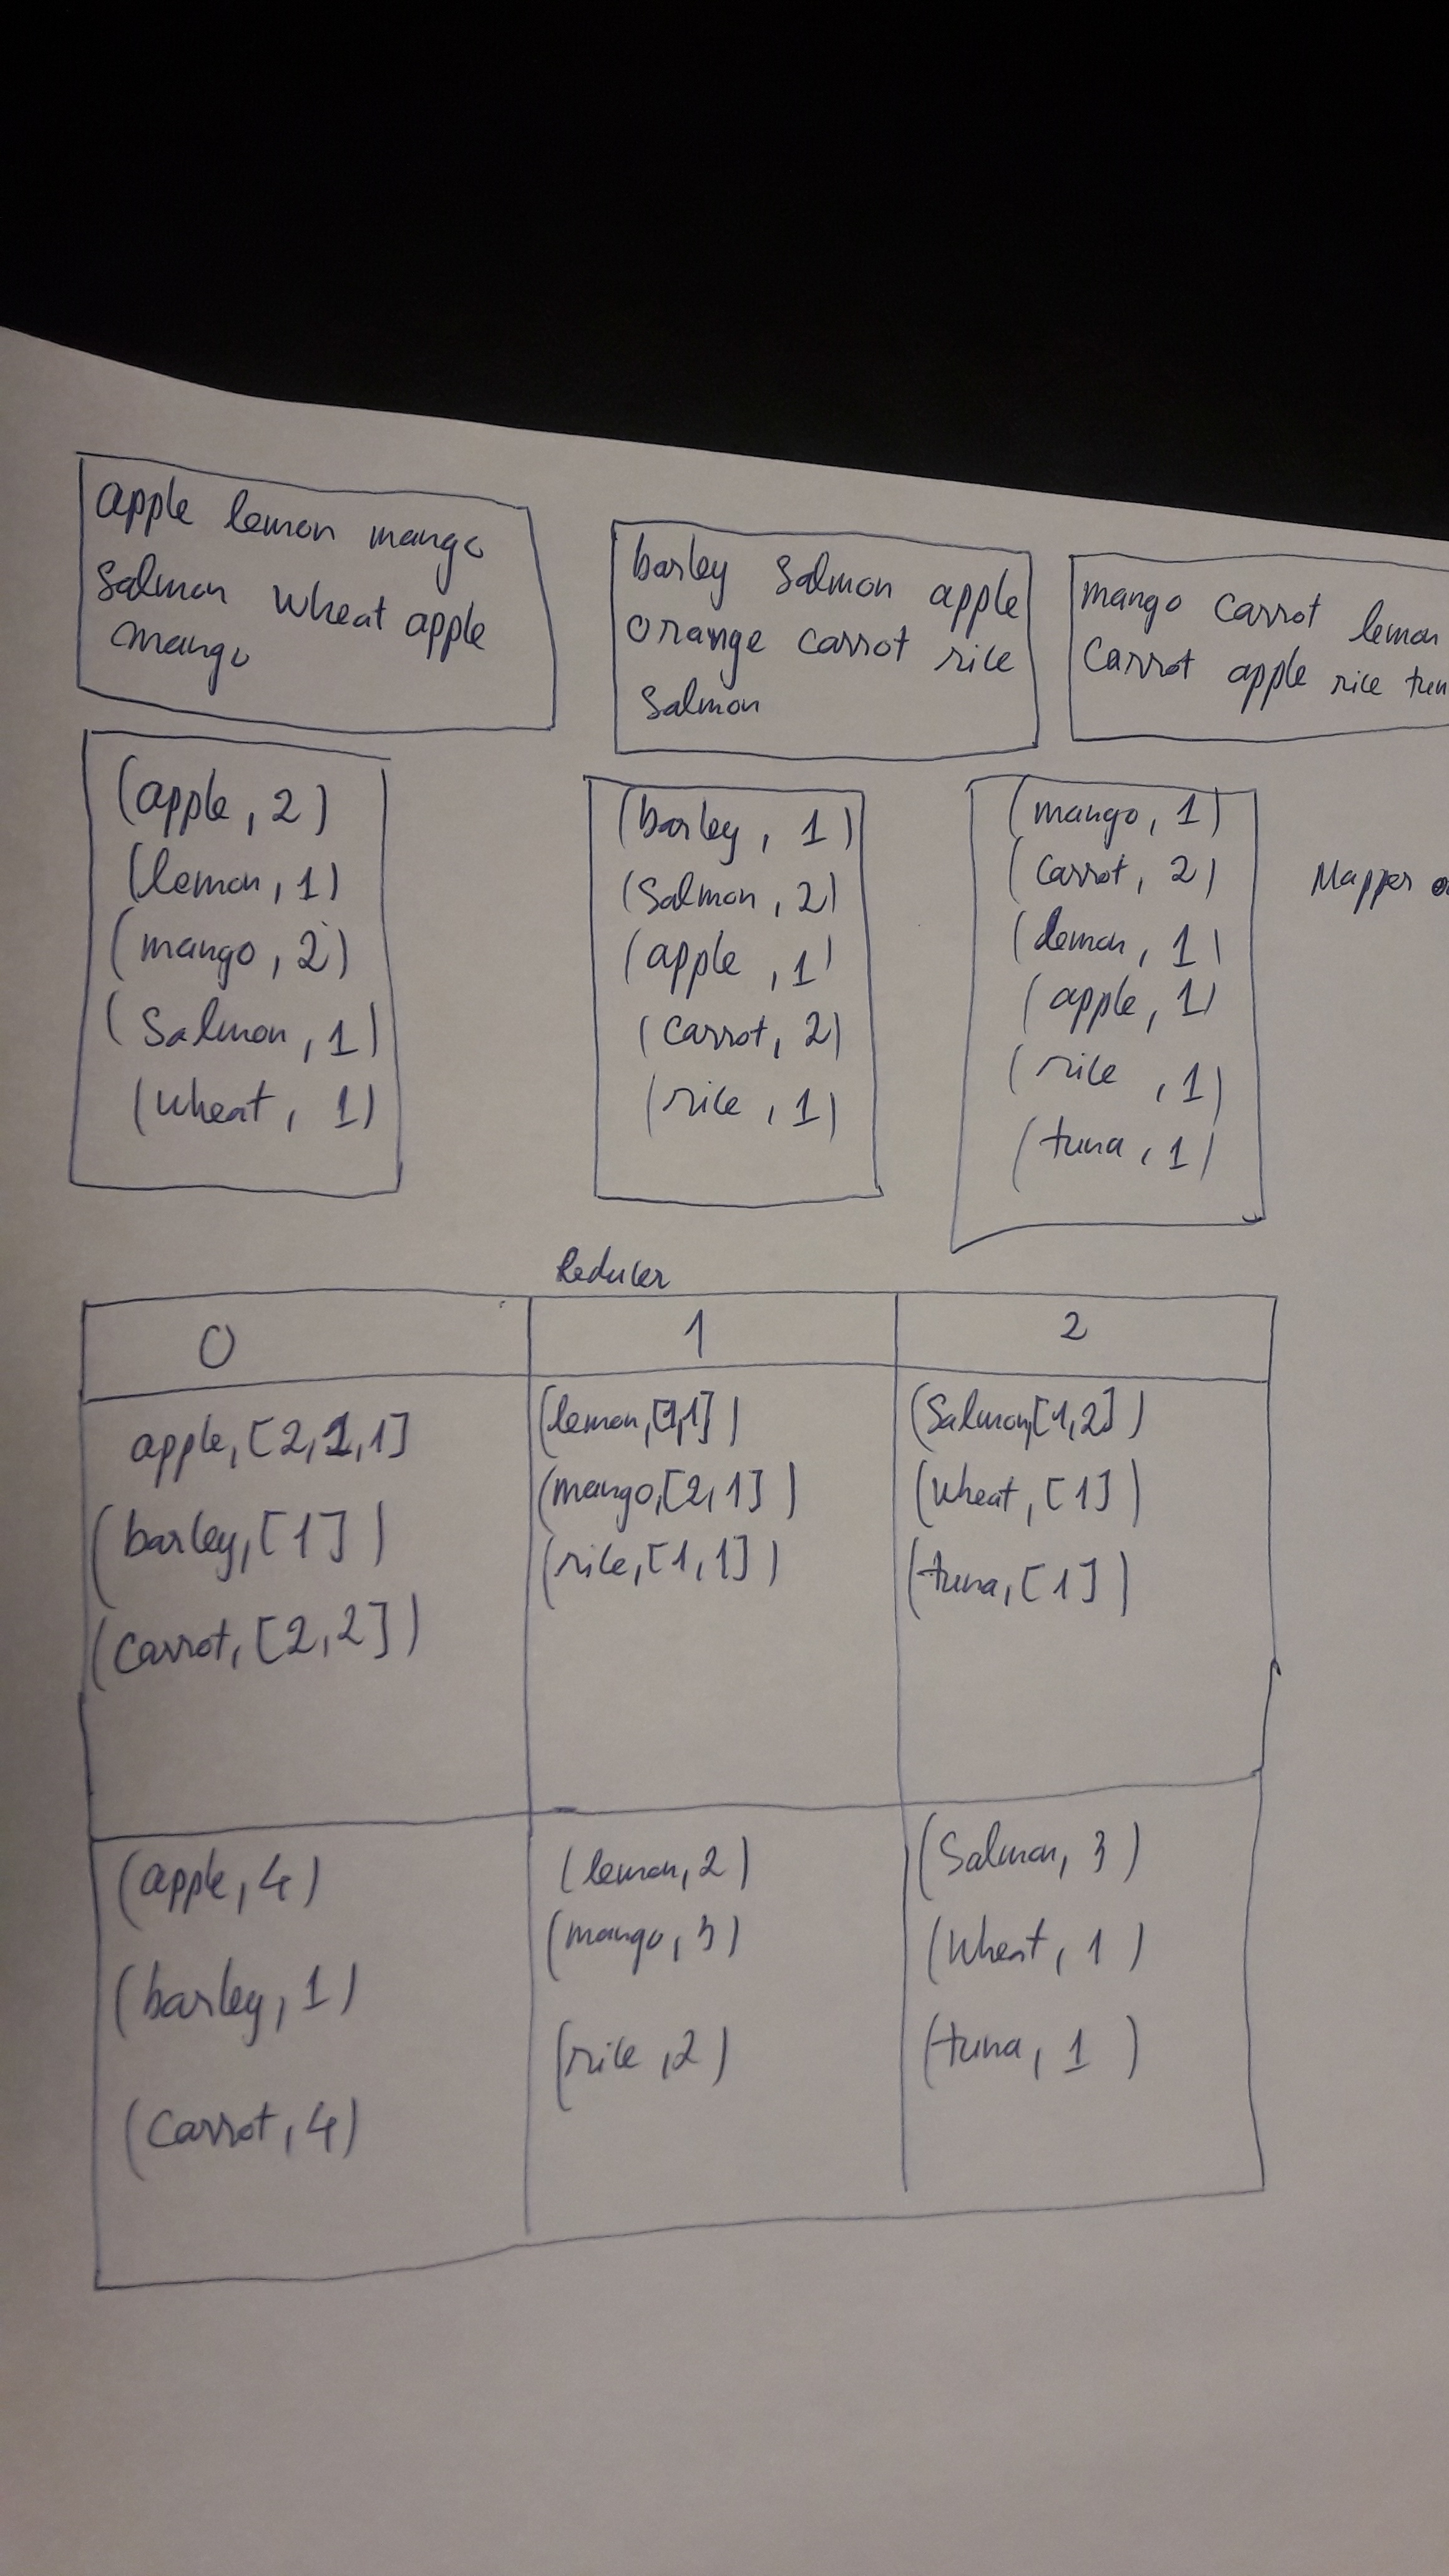 apple lemon mango
salmon wheat apple
mango
barley salmon apple
orange carrot rice
salmon
mango carrot lemon
carrot apple rice
(apple, 2)
(lemon, 1)
(mango, 2)
(salmon, 1)
(wheat, 1)
(barley, 1)
(salmon, 2)
(apple, 1)
(carrot, 2)
(rice, 1)
(mango, 1)
(carrot, 2)
(lemon, 1)
(apple, 1)
(rice, 1)
(tuna, 1)
Mapper
Reducer
0 1 2
apple, [2,1,1]
(barley, [1])
(carrot, [2,2])
(lemon, [1,1])
(mango, [2,1])
(rice, [1,1])
(salmon, [1,2])
(wheat, [1])
(tuna, [1])
(apple, 4)
(barley, 1)
(carrot, 4)
(lemon, 2)
(mango, 3)
(rice, 2)
(salmon, 3)
(wheat, 1)
(tuna, 1)